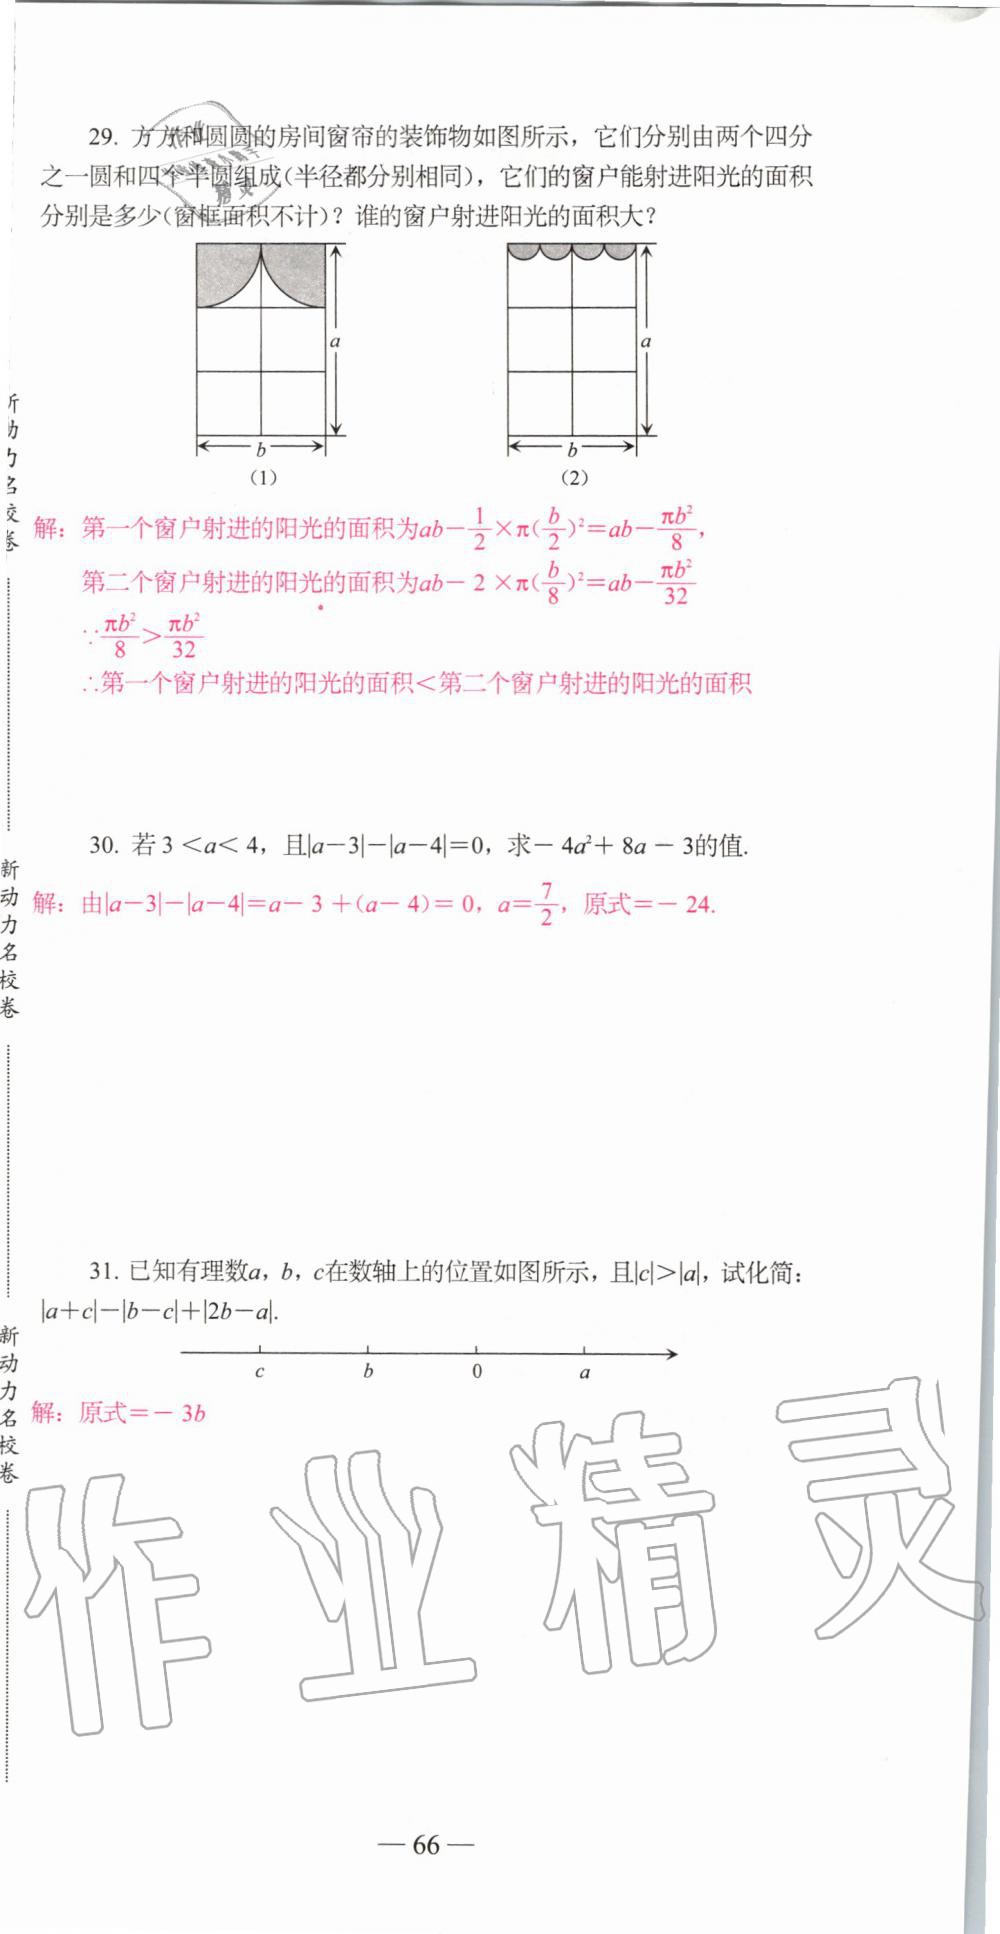 29. 方方和圆圆的房间窗帘的装饰物如图所示，它们分别由两个四分
之一圆和四个半圆组成(半径都分别相同)，它们的窗户能射进阳光的面积
分别是多少(窗框面积不计)？谁的窗户射进阳光的面积大？
a
a
b
b
(1)
(2)
解：第一个窗户射进的阳光的面积为ab－1/2×π(b/2)²＝ab－πb²/8，
第二个窗户射进的阳光的面积为ab－2×π(b/8)²＝ab－πb²/32
∵πb²/8＞πb²/32
∴第一个窗户射进的阳光的面积＜第二个窗户射进的阳光的面积
30. 若3＜a＜4，且|a－3|－|a－4|＝0，求－4a²＋8a－3的值.
解：由|a－3|－|a－4|＝a－3＋(a－4)＝0，a＝7/2，原式＝－24.
31. 已知有理数a，b，c在数轴上的位置如图所示，且|c|＞|a|，试化简：
|a＋c|－|b－c|＋|2b－a|.
c b 0 a
解：原式＝－3b
作业精灵
— 66 —
新动力名校卷
新动力名校卷
新动力名校卷